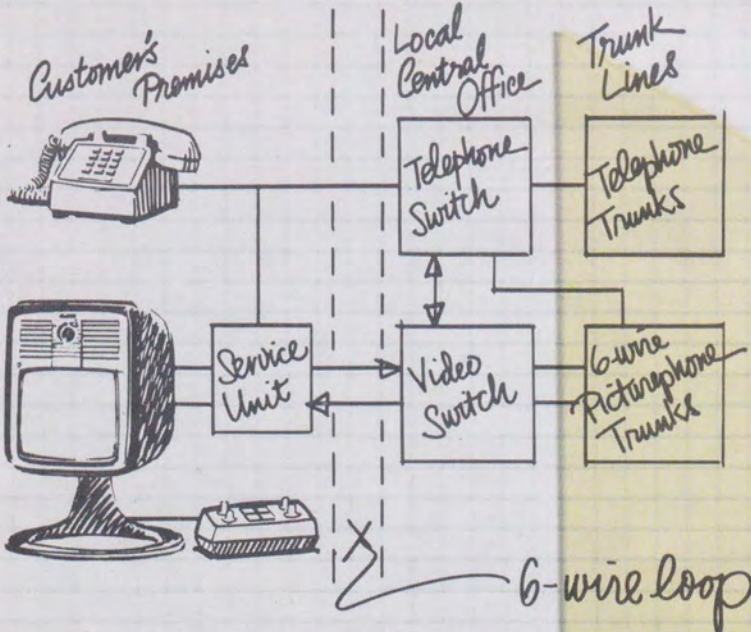 Customer's
Premises
Local
Central
Office
Trunk
Lines
Telephone
Switch
Telephone
Trunks
Service
Unit
Video
Switch
6-wire
Picturephone
Trunks
6-wire loop